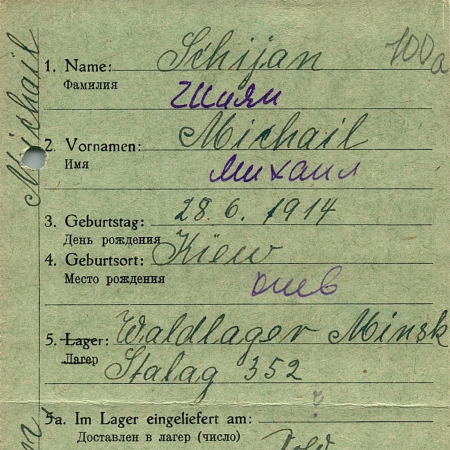 100a
1. Name: Schijan
Фамилия
Шиян
2. Vornamen: Michail
Имя
Михаил
3. Geburtstag: 28.6.1914
День рождения
4. Geburtsort: Kiew
Место рождения
Киев
5. Lager: Waldlager Minsk
Лагер
Stalag 352
?
5a. Im Lager eingeliefert am:
Доставлен в лагер (число)
Michail